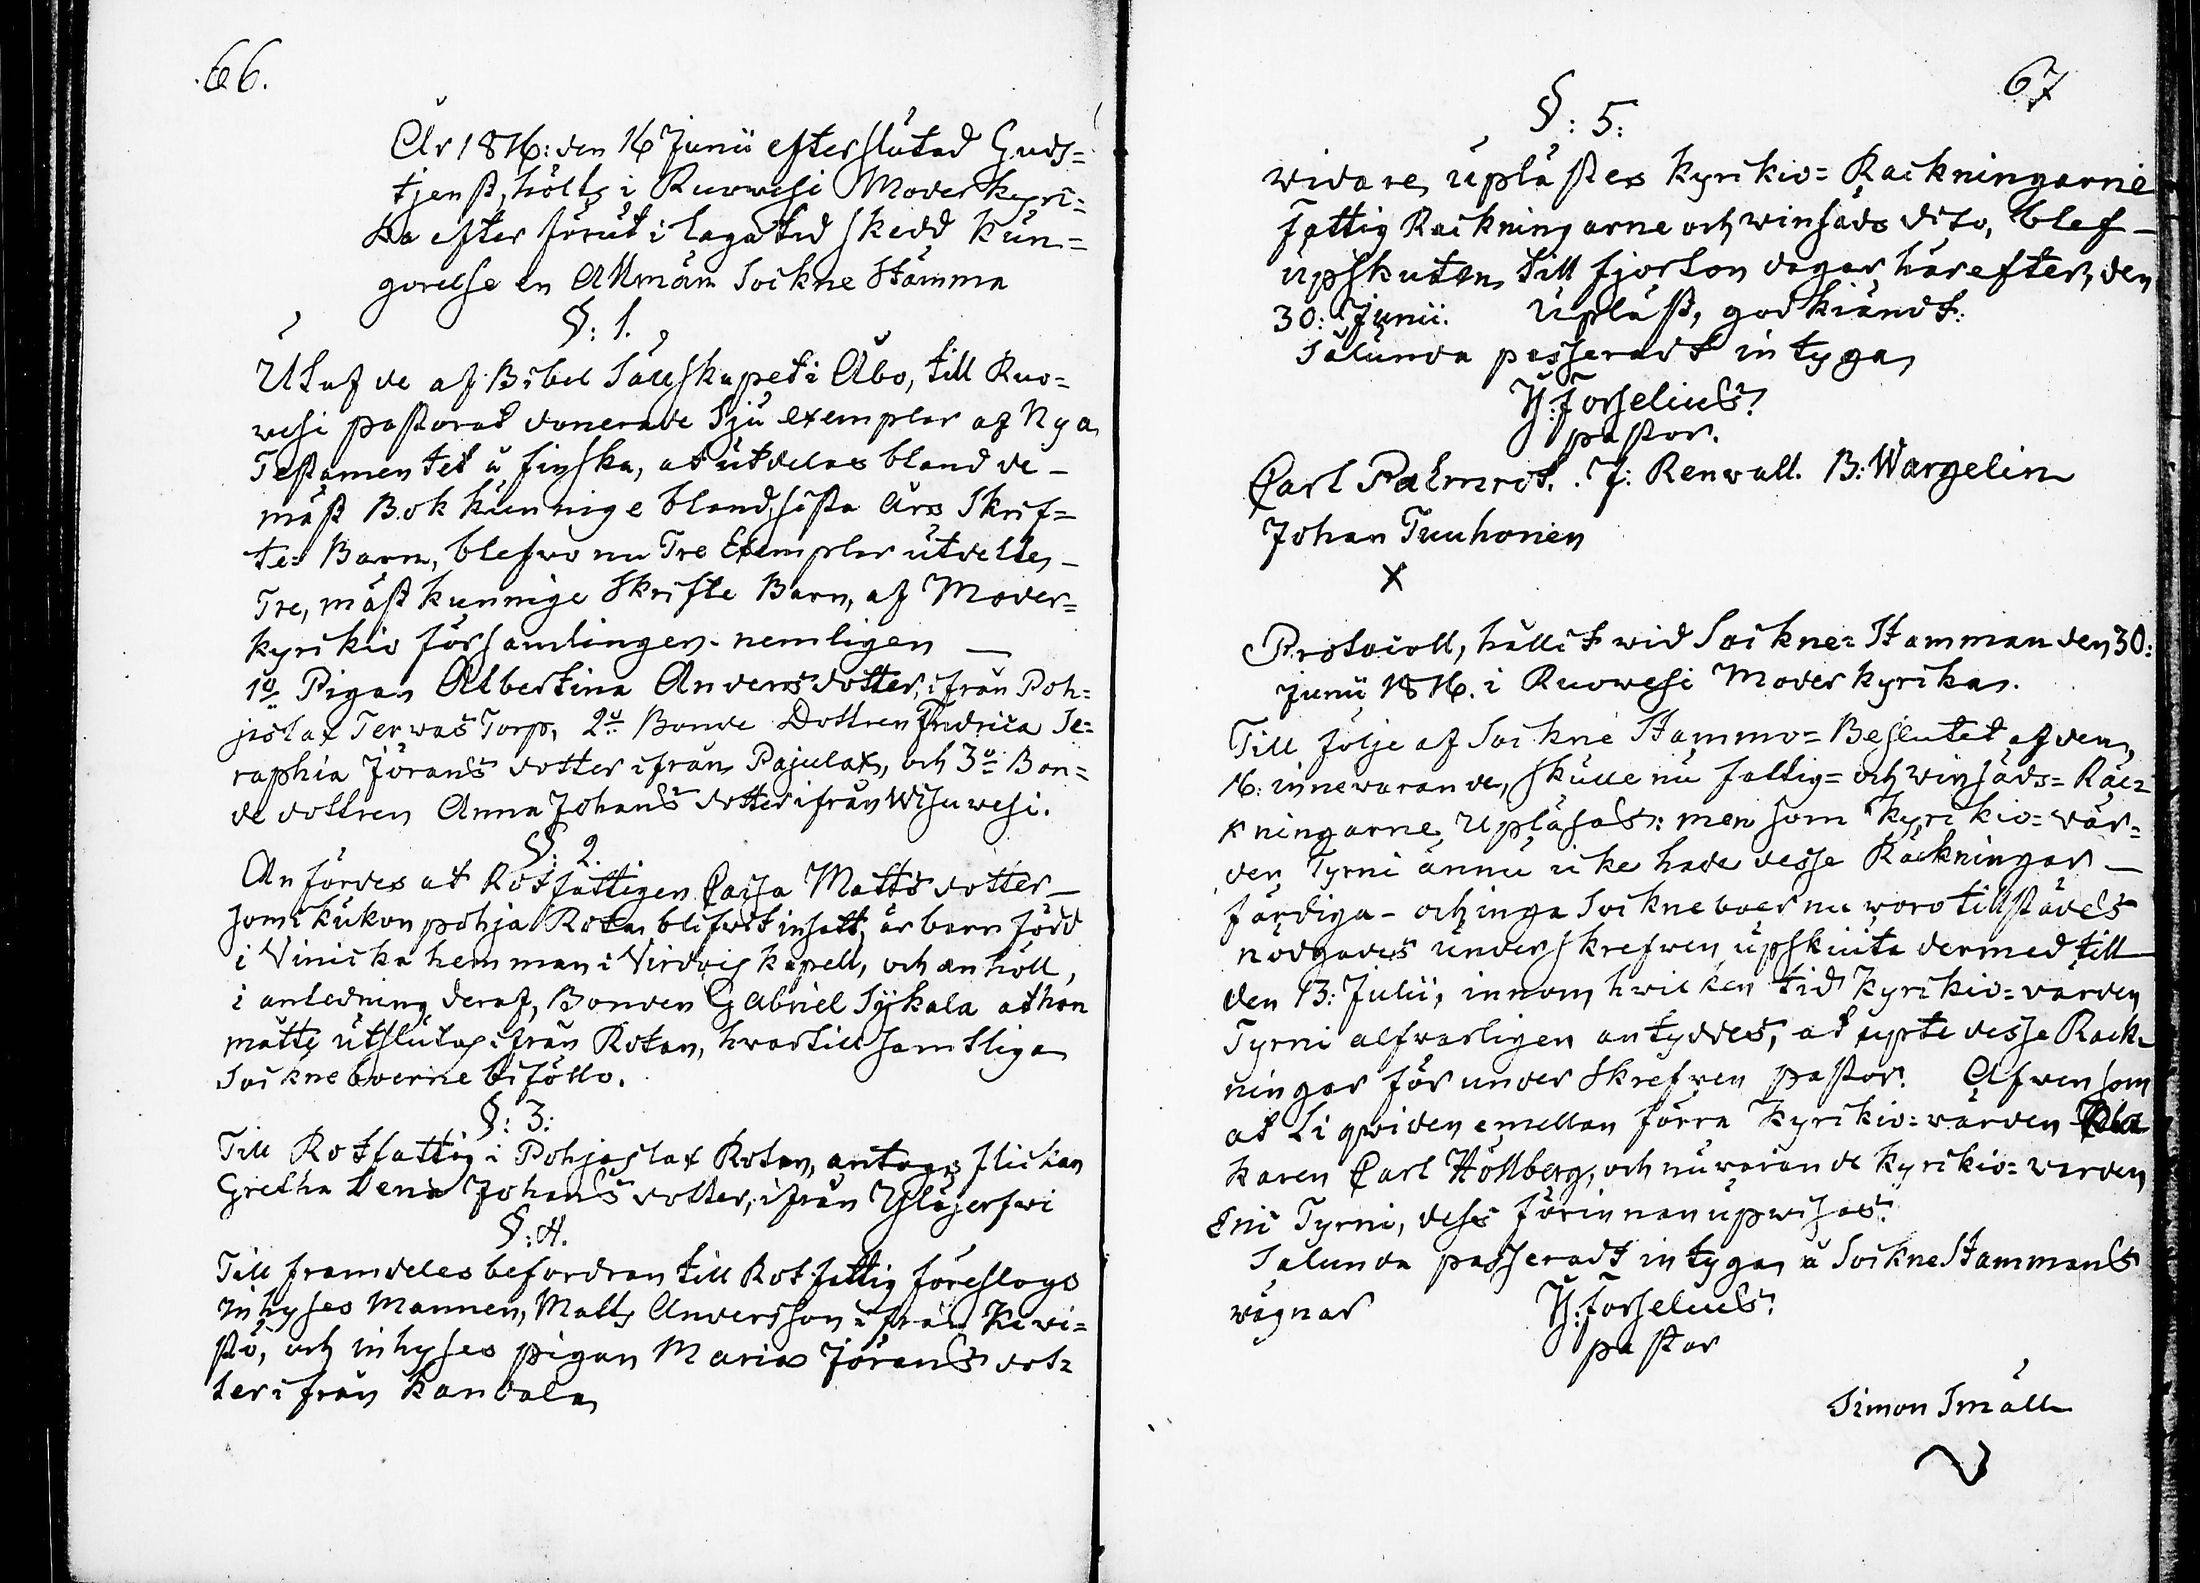 66.
År 1816: den 16 Junii efter slutad Guds=
tjenst, hölts i Ruovesi Moderkyri=
ka efter förut i laga tid skedd kun=
görelse en Allmän Sockne Stämma
§: 1.
Utaf de af Bibel Sällskapet i Åbo, till Ruo=
vesi pastorat donerade Sju exemplar af Nya
Testamentet å finska, at utdelas bland de _
mäst Bokkunnige bland sista Års Skrif=
te= Barn, blefvo nu Tre Exemplar utdelte _
Tre, mäst kunnige Skrifte Barn, af Moder=
kyrkio församlingen. nemligen _
1o Pigan Albertina Andersdotter, ifrån Poh=
jaslax Terwas Torp, 2o Bonde Dottren Fredrica Se=
raphia Jörans dotter ifrån Pajulax, och 3o Bon=
de dottren Anna Johans dotter ifrån Wisuwesi.
§: 2.
Anfördes at Rotfattigen Caisa Matts dotter _
som i Kukonpohja Rotan blifwit insatt, är barnfödd
i Vinicka hemman i Virdois kapell, och anhöll,
i anledning deraf, Bonden Gabriel Sykala at hon
måtte utslutas ifrån Rotan, hwartill samtliga
Sockneboerne biföllo.
§: 3:
Till Rotfattig i Pohjaslax Rotan, antogs flickan
Gretha Lena Johans dotter, ifrån Ylajerfwi
§: 4.
Till framdeles befordran till Rotfattig föreslogs
Inhyses Mannen, Matts Andersson ifrån Kiwi=
stö, och inhyses pigan Maria Jörans dot=
ter ifrån Kandala
67
§: 5:
widare, uplästes Kyrkio= Räckningarne
fattig Räckningarne och winsäds dito, blef _
upskuten till fjorton dagar härefter, den
30: Junii. Upläst, godkiändt.
Sålunda passeradt intygar
H: Forselius.
pastor.
Carl Palmrot. J: Renwall. B: Wargelin
Johan Tuuhonen
X
Protocoll, hållit wid Sockne= Stämman den 30:
Junii 1816. i Ruowesi Moderkyrka.
Till följe af Sockne Stämmo= Beslutet af den
16: innewarande, skulle nu fattig= och winsäds= Räc=
kningarne Upläsas: men som Kyrkio= vär=
den Tyrni ännu icke hade desse Räckningar _
färdiga _ och inga Sockneboer nu woro tillstädes
nödgades underskrefwen upskiuta dermed till
den 13: Julii, innom hwilken tid Kyrkio= värden
Tyrni alfwarligen antyddes, at upte desse Räck=
ningar för underskrefwen pastor. Äfwensom
at Liqviden emellan förra Kyrkio= värden
karen Carl Hollberg, och nuwarande Kyrkio= värden
Eric Tyrni, dess förinnan upwisas.
Sålunda passeradt intygar å SockneStämmans
wägnar H: Forselius.
pastor
Simon Småll